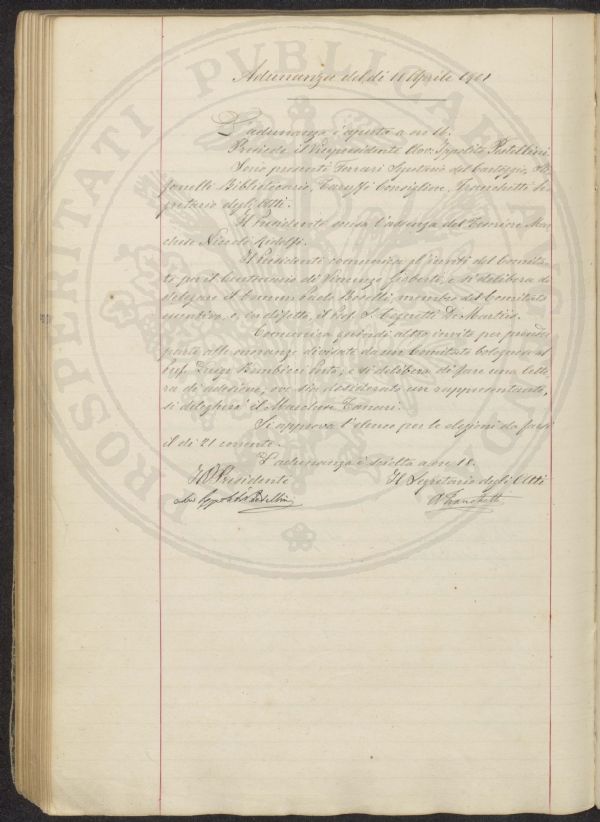 Adunanza del dì 11 Aprile 1901
L'adunanza è aperta a ore 16.
Presiede il Vicepresidente Avv. Ippolito Pestellini.
Sono presenti Ferrari Segretario del Carteggio,
Bibliotecario, Taruffi Consigliere, Franchetti Se-
gretario degli Atti.
Il Presidente scusa l'assenza del Mar-
chese Niccolò Ridolfi.
Il Presidente comunica gl'inviti del Comita-
to per il Centenario di Vincenzo Gioberti, e si delibera di
delegare il Comm. Paolo Boselli, membro del Comitato
esecutivo, o, in difetto, il Prof. S. Cognetti De Martiis.
Comunica quindi altro invito per prender
parte alle onoranze da un Comitato bolognese al
Prof. Luigi Bombicci Porta, e si delibera di fare una lette-
ra di adesione; ove sia desiderato un rappresentante,
si delegherà il Marchese Tanari.
Si approva l'elenco per le elezioni da farsi
il dì 21 corrente.
L'adunanza è sciolta a ore 18.
Il Presidente Il Segretario degli Atti
Avv Ippolito Pestellini A Franchetti
PROSPERITATI PUBLICAE AUGENDAE